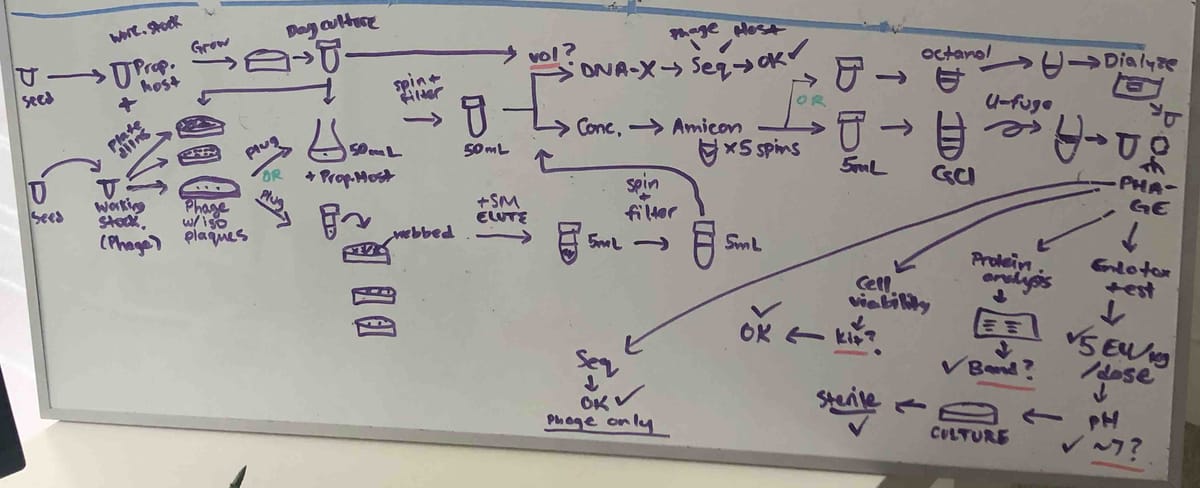 work. stock
Seed
Prop.
host
+
Grow
Day culture
vol?
DNA-X → Seq → OK ✓
Phage Host
OR
octanol
Dialyze
Seed
Working
Stock.
(Phage)
Plate
Phage
w/ iso
plaques
Plug
OR
Plug
50mL
+ Prop. Host
spin +
filter
50mL
Conc. → Amicon
x5 spins
5mL
CsCl
U-fuge
webbed
+SM
ELUTE
5mL
spin
+
filter
5mL
PHA-
GE
Seq
OK ✓
Phage only
Cell
viability
Kit?
OK
✓
Protein
analysis
✓ Band?
Endotox
test
✓ 5 EU/kg
/dose
pH
✓ ~7?
CULTURE
Sterile
✓